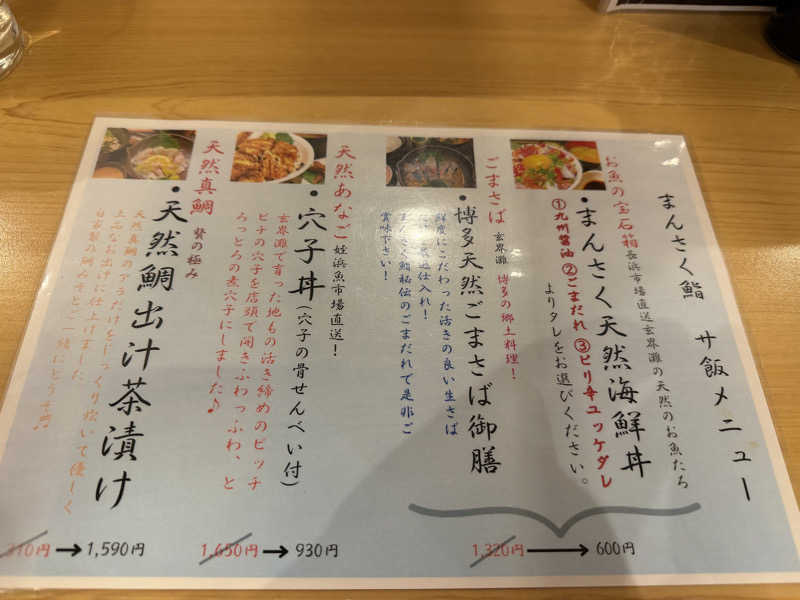 まんさく鮨 サ飯メニュー
お魚の宝石箱 長浜市場直送玄界灘の天然のお魚たち
・まんさく天然海鮮丼
①九州醤油 ②ごまだれ ③ピリ辛ユッケダレ
よりタレをお選びください。
ごまさば 玄界灘 博多の郷土料理!
・博多天然ごまさば御膳
鮮度にこだわった活きの良い生さば
まんさく鮨秘伝のごまだれで是非ご
賞味下さい!
1,320円→600円
天然あなご 姪浜魚市場直送!
・穴子丼(穴子の骨せんべい付)
玄界灘で育った地もの活き締めのピッチ
ピチの穴子を店頭で開きふわっふわ、と
ろっとろの煮穴子にしました♪
1,650円→930円
天然真鯛 贅の極み
・天然鯛出汁茶漬け
天然真鯛のアラだけをじっくり炊いて優しく
上品なお出汁に仕上げました
310円→1,590円